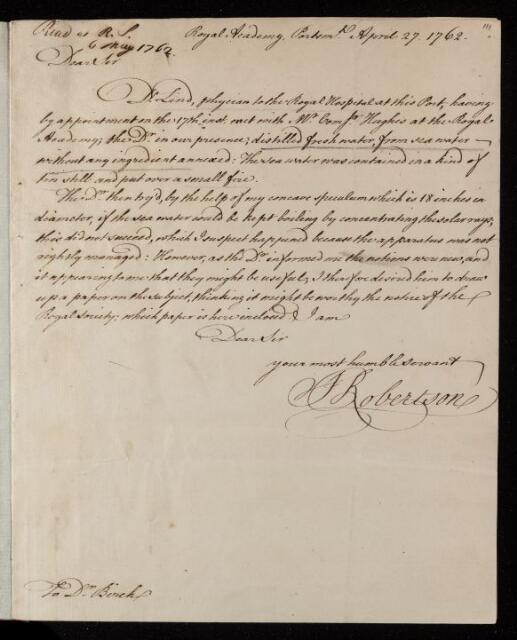 Read at R. S.
6 May 1762.
Royal Academy, Portsmo. April 27. 1762.
Dear Sir
Dr. Lind, physician to the Royal Hospital at this Port, having
by appointment on the 17th inst. met with Mr. Comr. Hughes at the Royal
Academy; the Dr. in our presence, distilled fresh water, from sea water
without any ingredient annexed: The sea water was contained in a kind of
tin still and put over a small fire.
The Dr. then try'd, by the help of my concave speculum which is 18 inches in
diameter, if the sea water could be kept boiling by concentrating the solar rays;
this did not succeed, which I suspect happened because the apparatus was not
rightly managed: However, as the Dr. informed me the notions were new, and
it appearing to me that they might be useful; I therefore desired him to draw
up a paper on the subject, thinking it might be worthy the notice of the
Royal Society; which paper is here inclosed. I am
Dear Sir
your most humble servant
J Robertson
To Dr. Birch